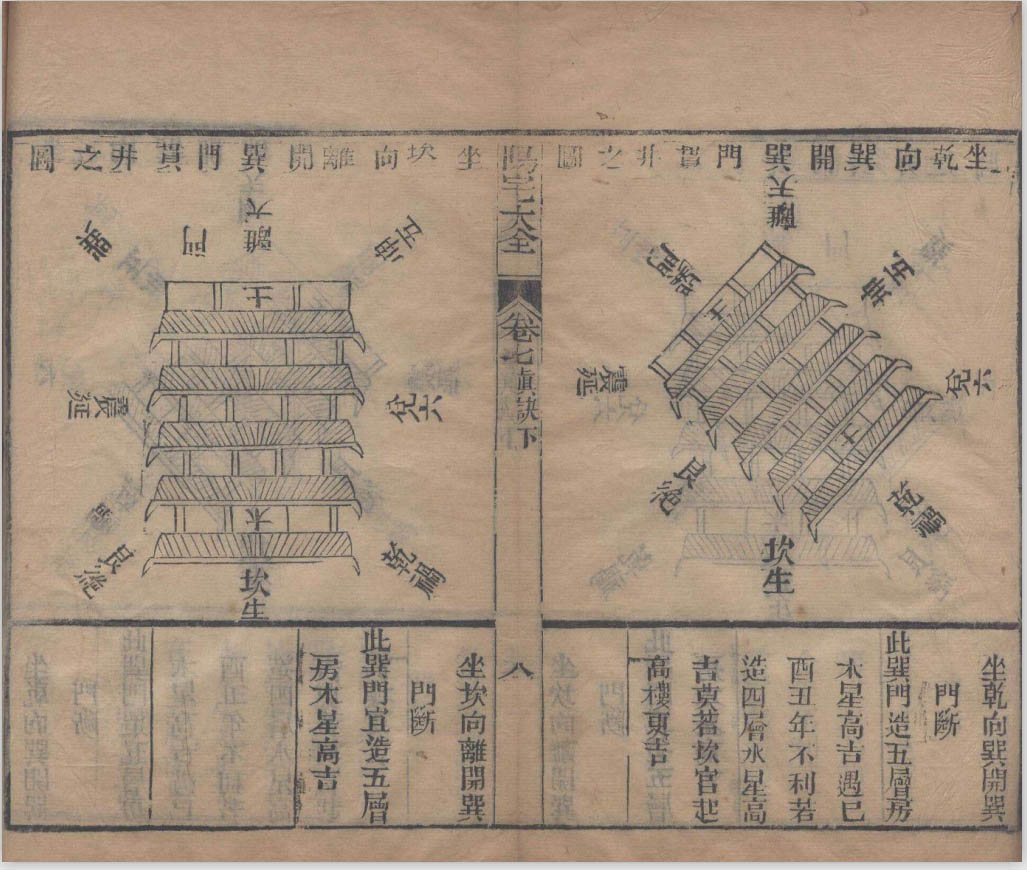 坐乾向巽開巽門貫井之圖
離天
坤五
兌六
乾禍
坎生
艮絕
震延
巽門
土
土
坐乾向巽開巽
門斷
此巽門造五層房
木星高吉遇巳
酉丑年不利若
造四層水星高
吉莫若坎宮起
高樓更吉
陽宅大全
卷七眞訣下
八
坐坎向離開巽門貫井之圖
離天
坤五
兌六
乾禍
坎生
艮絕
震延
巽
門
土
木
坐坎向離開巽
門斷
此巽門宜造五層
房木星高吉